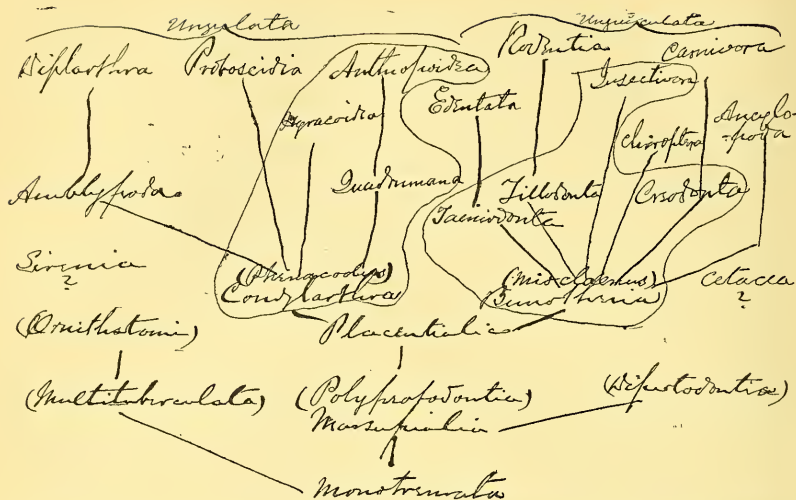 Ungulata
Unguiculata
Diplarthra
Proboscidia
Anthropoidea
Rodentia
Carnivora
Insectivora
Hyracoidea
Edentata
Chiroptera
Ancylo-
-poda
Amblypoda
Quadrumana
Tillodonta
Creodonta
Taeniodonta
Sirenia
?
(Phenacodus)
Condylarthra
(Mioclaenus)
Bunotheria
Cetacea
?
(Ornithstomi)
Placentialia
(Multituberculata)
(Polyprotodontia)
Marsupialia
(Diprotodontia)
Monotremata